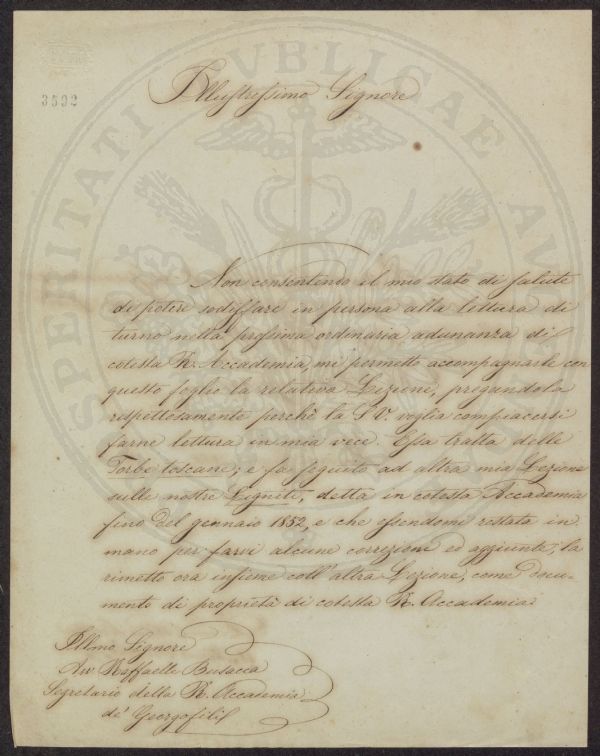 3592
Illustrissimo Signore
Non consentendo il mio stato di salute
di potere sodisfare in persona alla lettura di
turno nella prossima ordinaria adunanza di
cotesta R. Accademia, mi permetto accompagnarle con
questo foglio la relativa Lezione, pregandola
rispettosamente perchè la S. V. voglia compiacersi
farne lettura in mia vece. Essa tratta delle
Torbe toscane; e fa seguito ad altra mia Lezione
sulle nostre Ligniti, detta in cotesta Accademia
fino del gennaio 1852, e che essendomi restata in
mano per farvi alcune correzioni ed aggiunte, la
rimetto ora insieme coll' altra Lezione, come docu-
mento di proprietà di cotesta R. Accademia.
Illmo Signore
Avv Raffaelle Busacca
Segretario della R. Accademia
de' Georgofili
PUBLICAE